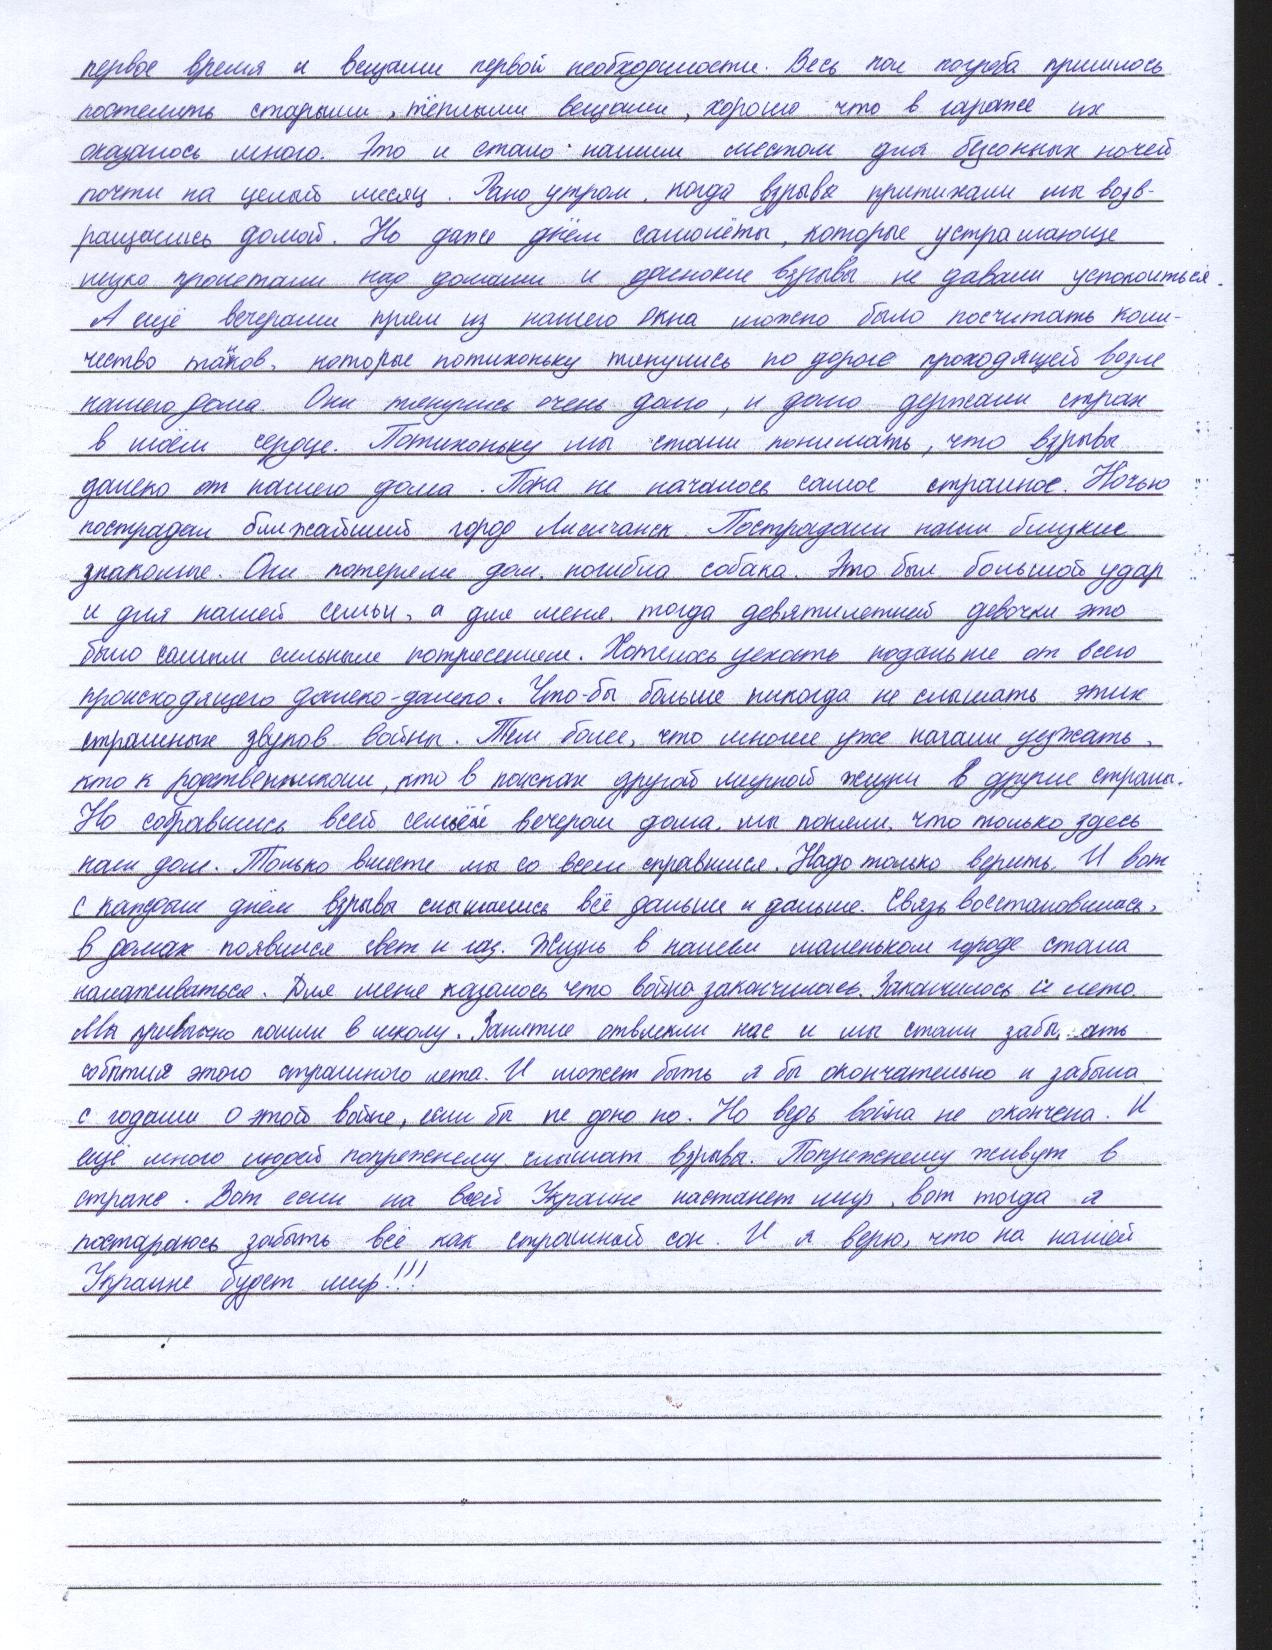 первое время и вещами первой необходимости. Весь пол погреба пришлось
постелить старыми, тёплыми вещами, хорошо что в гараже их
оказалось много. Это и стало нашим местом для безсонных ночей
почти на целый месяц. Рано утром, когда взрывы притихали мы возв-
ращались домой. Но даже днём самолёты, которые устрашающе
низко пролетали над домами и одинокие взрывы не давали успокоиться.
А ещё вечерами прям из нашего окна можно было посчитать коли-
чество танков, которые потихоньку тянулись по дороге проходящей возле
нашего дома. Они тянулись очень долго, и долго держали страх
в моём сердце. Потихоньку мы стали понимать, что взрывы
далеко от нашего дома. Пока не началось самое страшное. Ночью
пострадал ближайший город Лисичанск. Пострадали наши близкие
знакомые. Они потеряли дом, погибла собака. Это был большой удар
и для нашей семьи, а для меня, тогда девятилетней девочки это
было самым сильным потрясением. Хотелось уехать подальше от всего
происходящего далеко-далеко. Что-бы больше никогда не слышать этих
страшных звуков войны. Тем более, что многие уже начали уезжать,
кто к родственникам, кто в поисках другой мирной жизни в другие страны.
Но собравшись всей семьёй вечером дома, мы поняли, что только здесь
наш дом. Только вместе мы со всем справимся. Надо только верить. И вот
с каждым днём взрывы слышались всё дальше и дальше. Связь восстановилась,
в домах появился свет и газ. Жизнь в нашем маленьком городе стала
налаживаться. Для меня казалось что война закончилась. Закончилось и лето.
Мы привычно пошли в школу. Занятие отвлекли нас и мы стали забывать
события этого страшного лета. И может быть я бы окончательно и забыла
с годами о этой войне, если бы не одно но. Но ведь война не окончена. И
ещё много людей попрежнему слышат взрывы. Попрежнему живут в
страхе. Вот если на всей Украине настанет мир, вот тогда я
постараюсь забыть всё как страшный сон. И я верю, что на нашей
Украине будет мир!!!